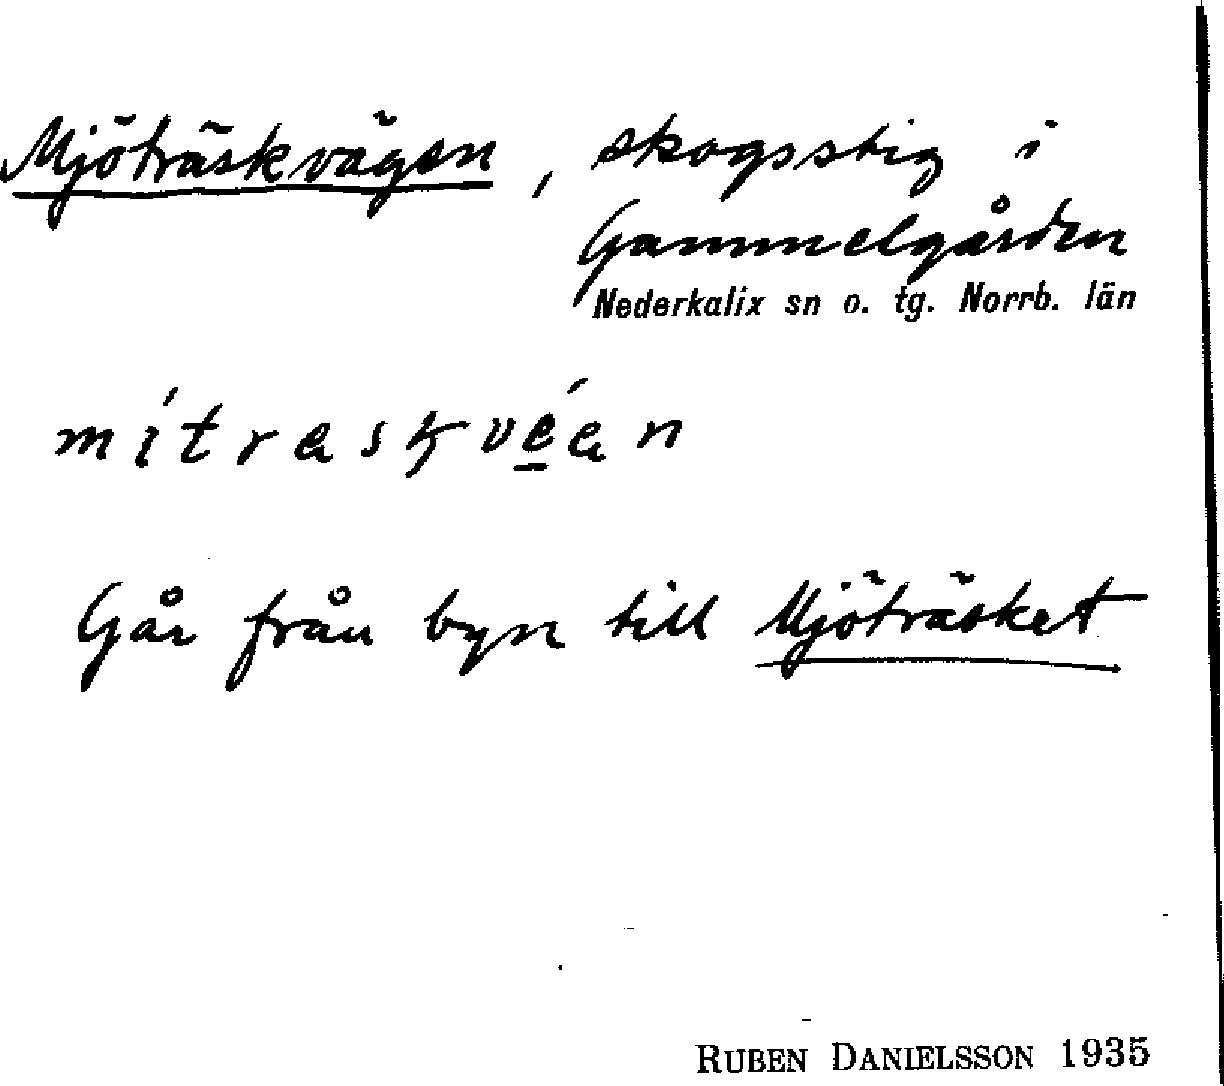 Mjöträskvägen, skogsstig i
Gammelgården
Nederkalix sn o. tg. Norrb. län
Går från byn till Mjöträsket
RUBEN DANIELSSON 1935